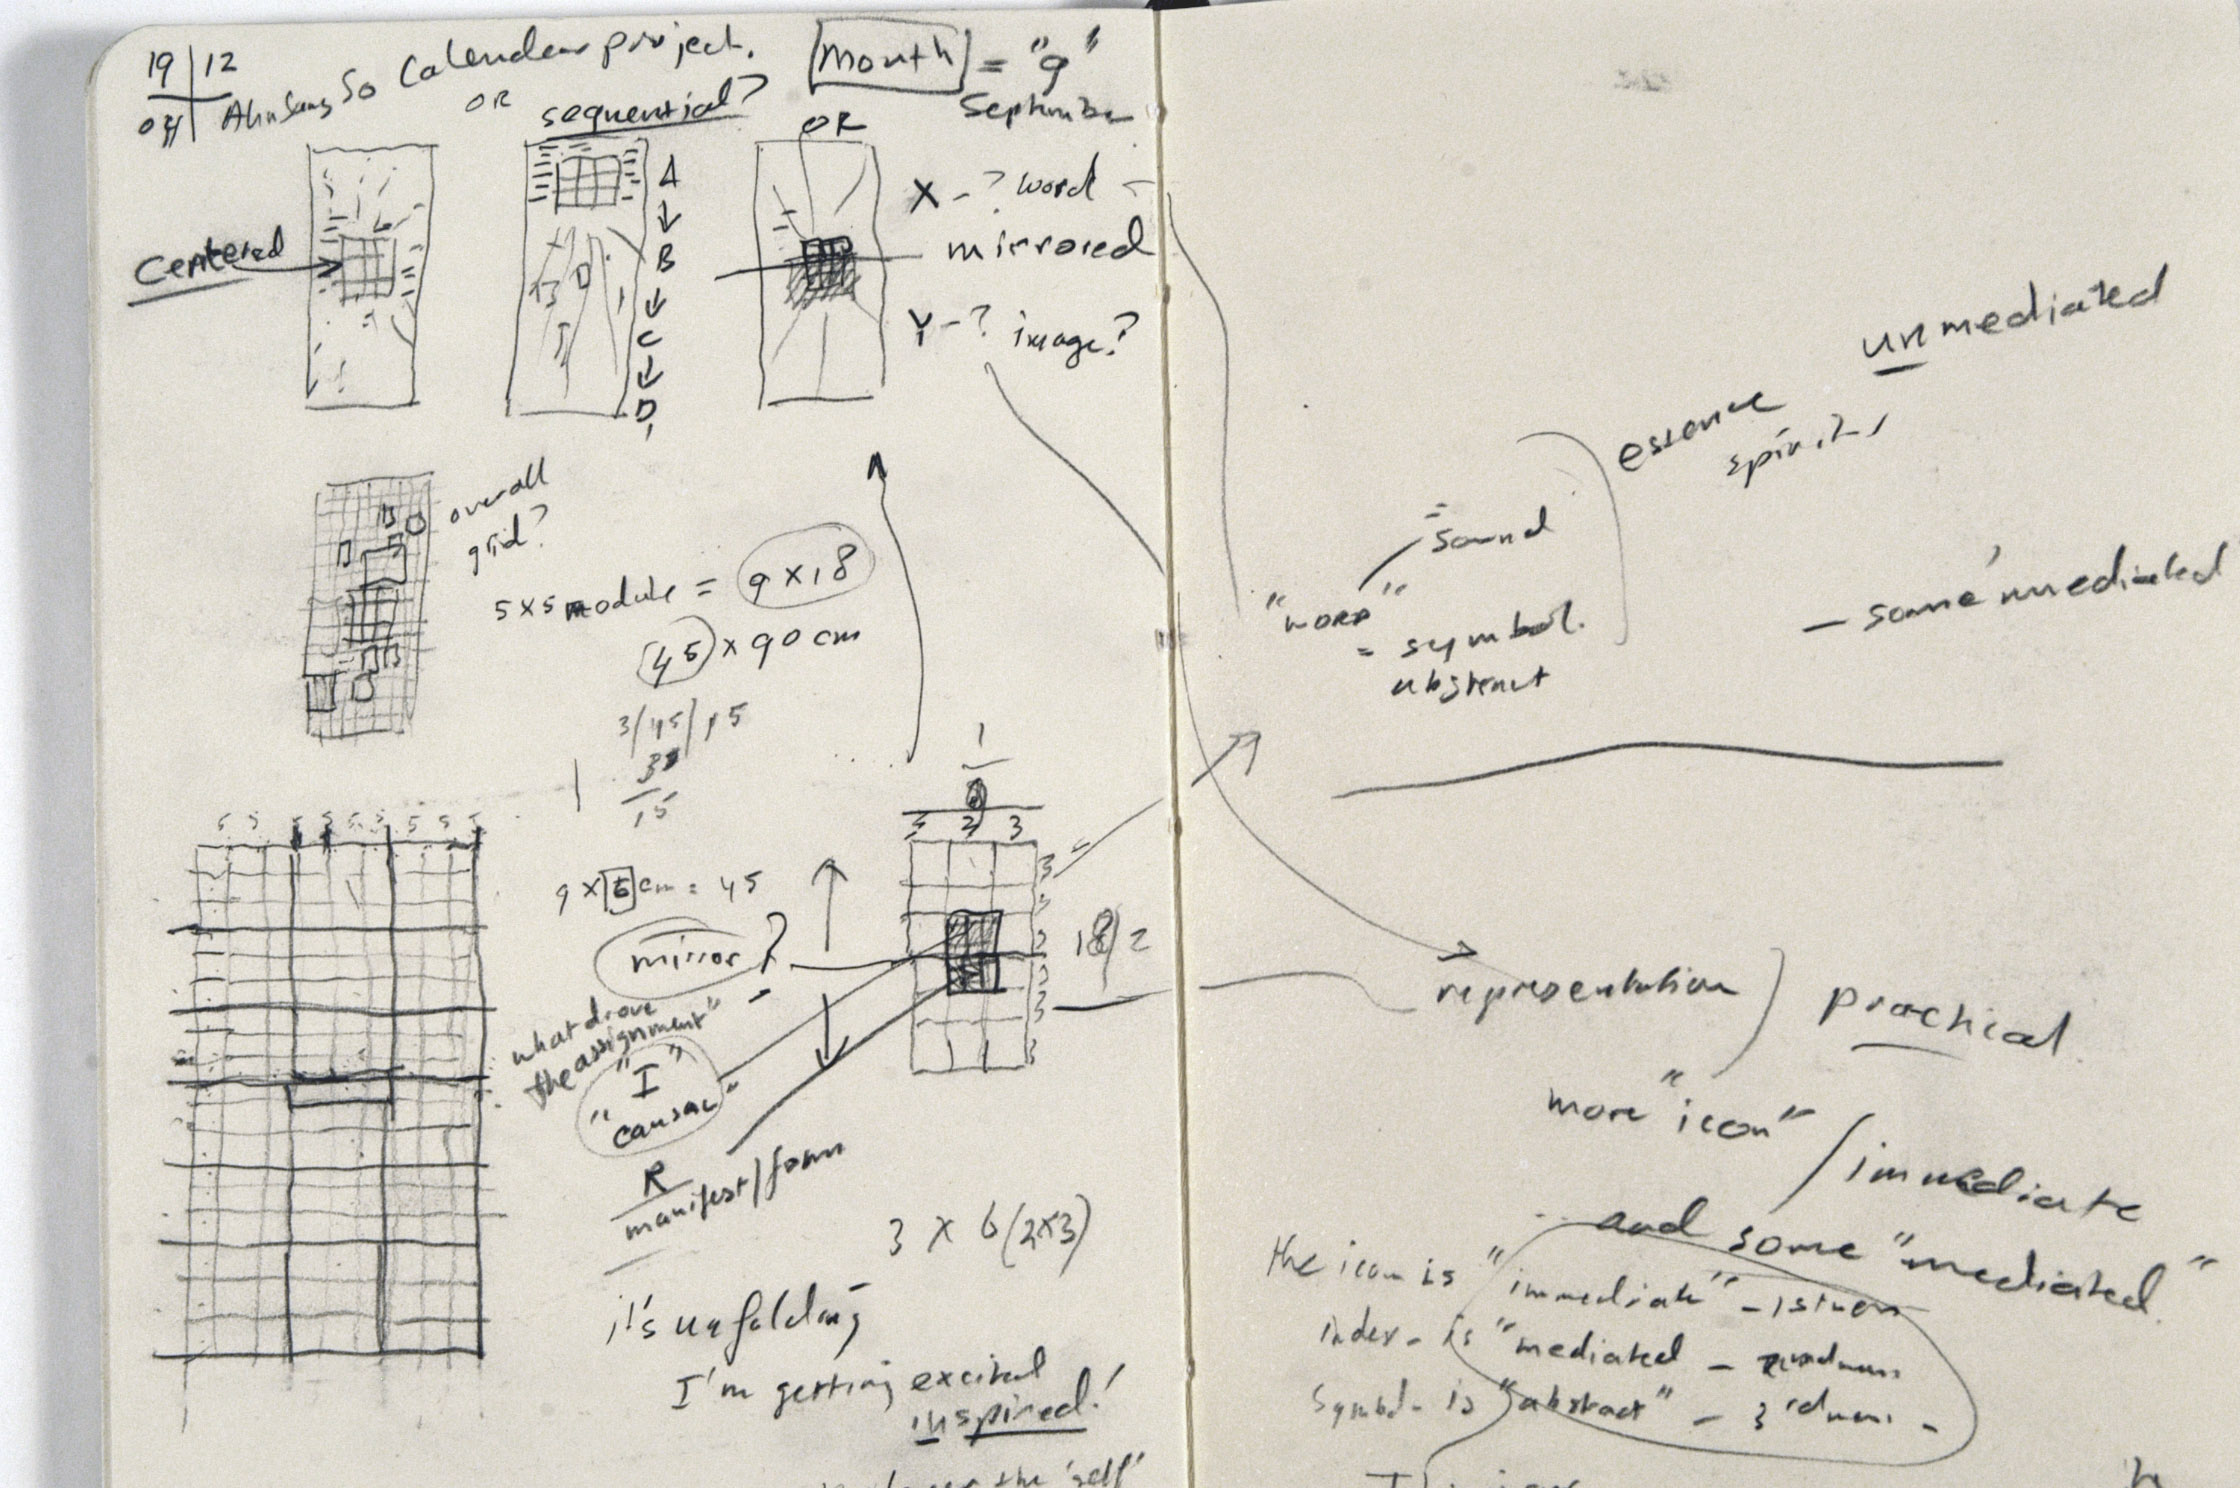 19 | 12
So Calendar project.
Month = "9"
September
OR sequential?
OR
Centered
A
B
C
D
X - ? word -
mirrored
Y - ? image?
overall
grid?
5 x 5 module = 9 x 18
45 x 90 cm
3/45/15
15
5 5 5 5 5 5 5 5 5
9 x 5 cm = 45
mirror?
what drove
the assignment"
"I"
"causal"
R
manifest/form
1
2 3
3
3
18/2
3 x 6 (2x3)
it's unfolding
I'm getting excited
inspired!
the 'self'
unmediated
essence
spirit
= sound
"word"
= symbol.
abstract
- some mediated
representation
practical
more "icon"
/ immediate
and some "mediated"
the icon is "immediate" - 1stness
index - is "mediated -
symbol - is "abstract" - 3rdness -